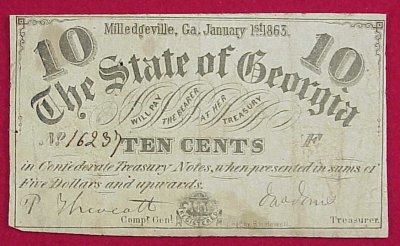 Milledgeville, Ga. January 1st 1863.
10 10
The State of Georgia
WILL PAY THE BEARER AT HER TREASURY
No. 16237 TEN CENTS F
in Confederate Treasury Notes, when presented in sums of
Five Dollars and upwards.
Compt. Genl. Treasurer.